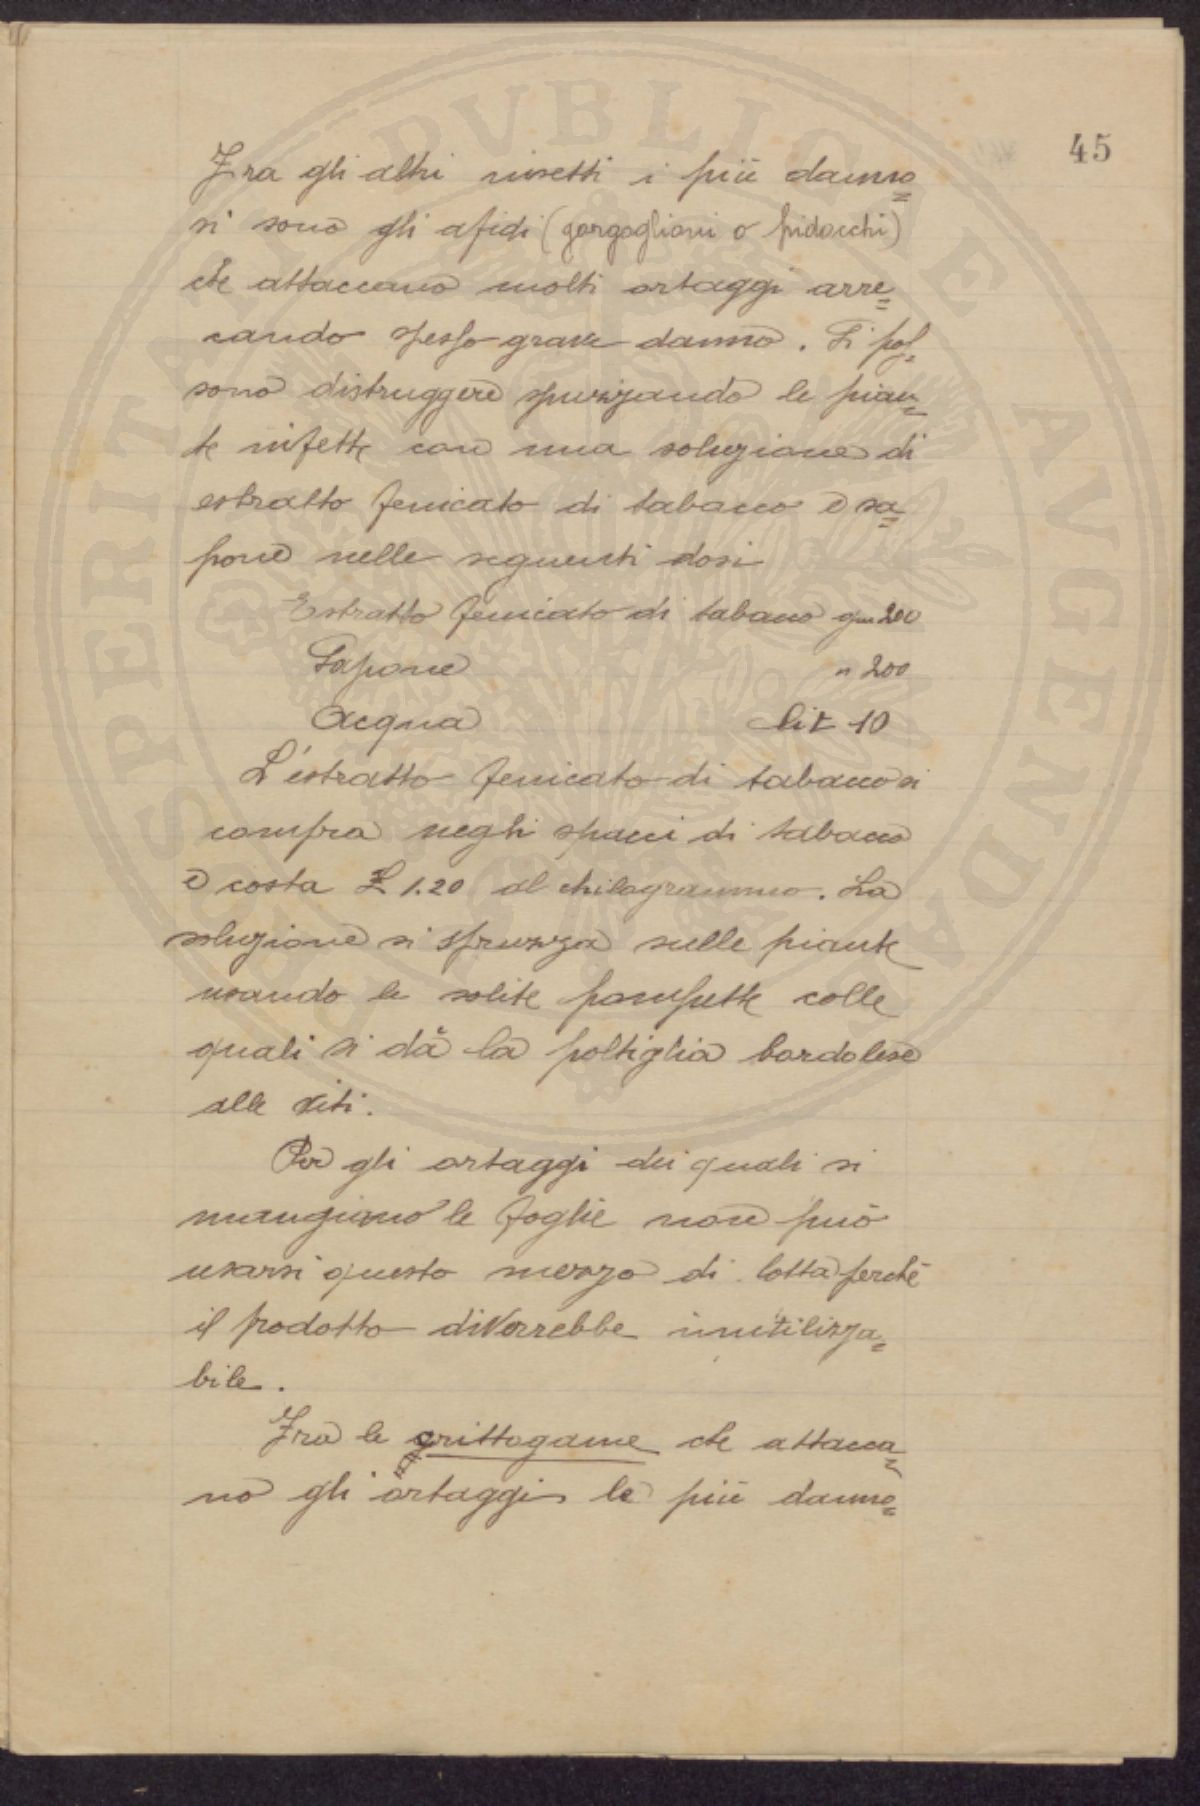 45
Fra gli altri insetti i più danno=
si sono gli afidi (gorgoglioni o pidocchi)
che attaccano molti ortaggi arre=
cando spesso grave danno. Si pos=
sono distruggere spruzzando le pian=
te infette con una soluzione di
estratto fenicato di tabacco e sa=
pone nelle seguenti dosi
Estratto fenicato di tabacco gm 200
Sapone " 200
Acqua Lit 10
L'estratto fenicato di tabacco si
compra negli spacci di tabacco
e costa £ 1.20 al chilogrammo. La
soluzione si spruzza sulle piante
usando le solite pompette colle
quali si dà la poltiglia bordolese
alle viti.
Per gli ortaggi dei quali si
mangiano le foglie non può
usarsi questo mezzo di lotta perchè
il prodotto diverrebbe inutilizza=
bile.
Fra le crittogame che attacca=
no gli ortaggi le più danno=
PROSPERITATI PVBLICAE AVGENDAE